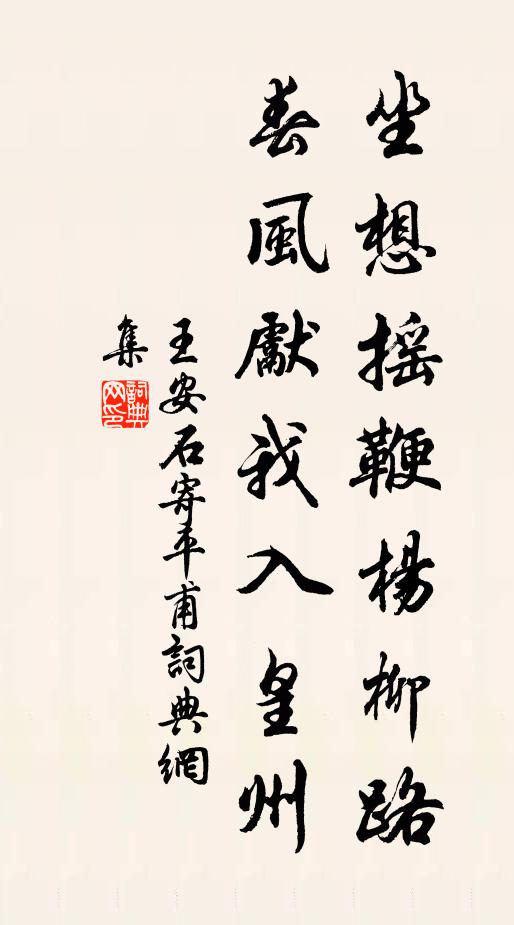 坐想摇鞭楊柳路
春風獻我入皇州
王安石寄平甫詞典網
集
詞典网印